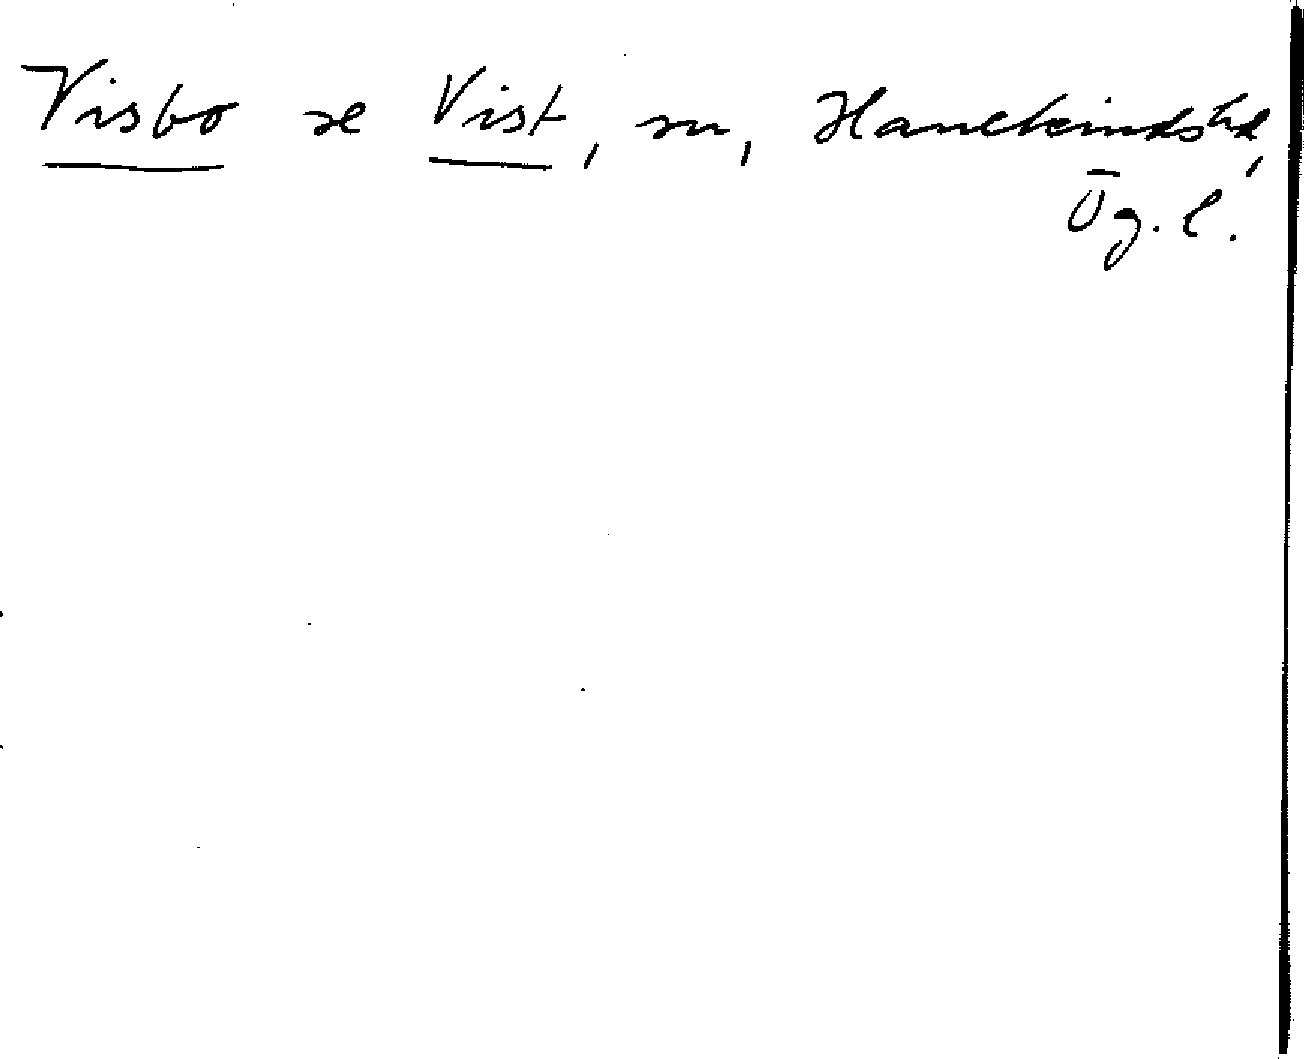 Visbo se Vist, sn, Hanekindshd,
Ög. l.